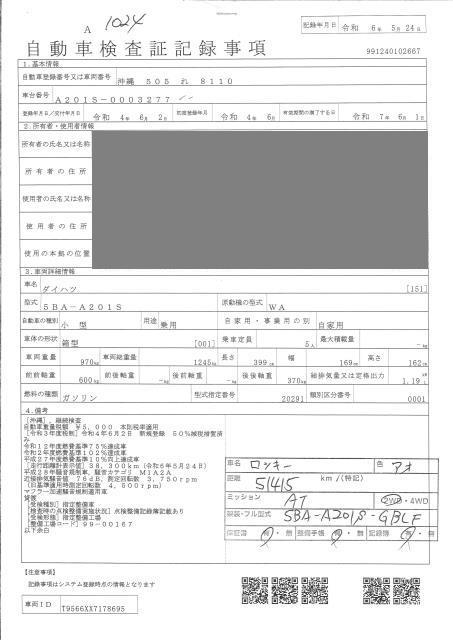 A 1024
記録年月日 令和 6年 5月 24日
自動車検査証記録事項
991240102667
1.基本情報
自動車登録番号又は車両番号 沖縄 505 れ 8110
車台番号 A201S-0003277
登録年月日／交付年月日 令和 4年 6月 2日 初度登録年月 令和 4年 6月 有効期間の満了する日 令和 7年 6月 1日
2.所有者・使用者情報
所有者の氏名又は名称
所有者の住所
使用者の氏名又は名称
使用者の住所
使用の本拠の位置
3.車両詳細情報
車名 ダイハツ [151]
型式 5BA-A201S 原動機の型式 WA
自動車の種別 小型 用途 乗用 自家用・事業用の別 自家用
車体の形状 箱型 [001] 乗車定員 5人 最大積載量 -kg
車両重量 970kg 車両総重量 1245kg 長さ 399cm 幅 169cm 高さ 162cm
前前軸重 600kg 前後軸重 -kg 後前軸重 -kg 後後軸重 370kg 総排気量又は定格出力 1.19L
燃料の種類 ガソリン 型式指定番号 20291 類別区分番号 0001
4.備考
[沖縄], 継続検査
自動車重量税 ¥5,000 本則税率適用
[令和3年度税制] 令和4年6月2日 新規登録 50%減税措置済み
令和12年度燃費基準75%達成車
令和2年度燃費基準102%達成車
平成27年度燃費基準10%向上達成車
[走行距離計表示値] 38,300km (令和6年5月24日)
平成28年騒音規制車, 騒音カテゴリ M1A2A
近接排気騒音値 76dB, 測定回転数 3,750rpm
(旧基準適用時測定回転数 4,500rpm)
マフラー加速騒音規制適用車
[受検種別] 指定整備車
[検査時の点検整備実施状況] 点検整備記録簿記載あり
[受検形態] 指定整備工場
[整備工場コード] 99-00167
以下余白
車名 ロッキー 色 アオ
距離 51415 km/(特記)
ミッション AT 2WD・4WD
類装・フル型式 5BA-A201S-GBLF
保証書 有・無 整備手帳 有・無 記録簿 有・無
【注意事項】
記録事項はシステム登録時点の情報となります
車両ID T9566XX7178695